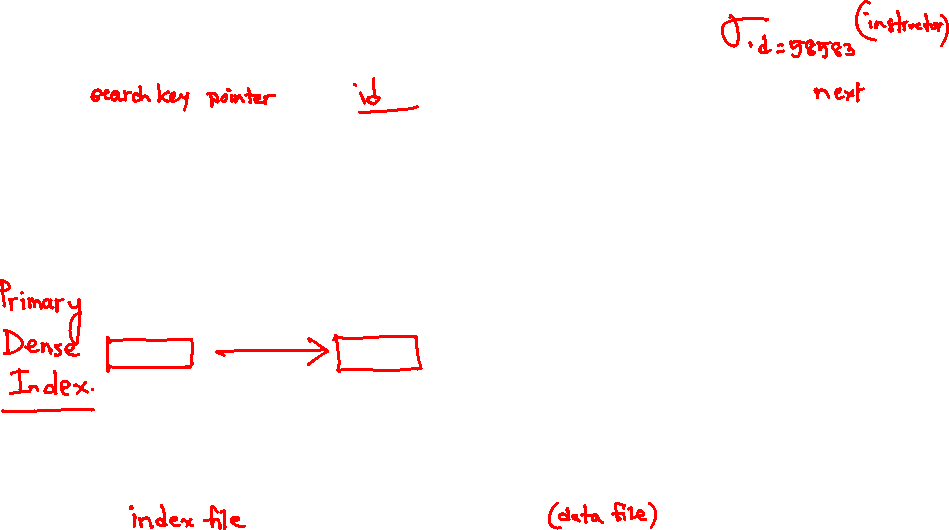 σ id=58583 (instructor)
search key pointer id
next
Primary
Dense
Index.
index file (data file)